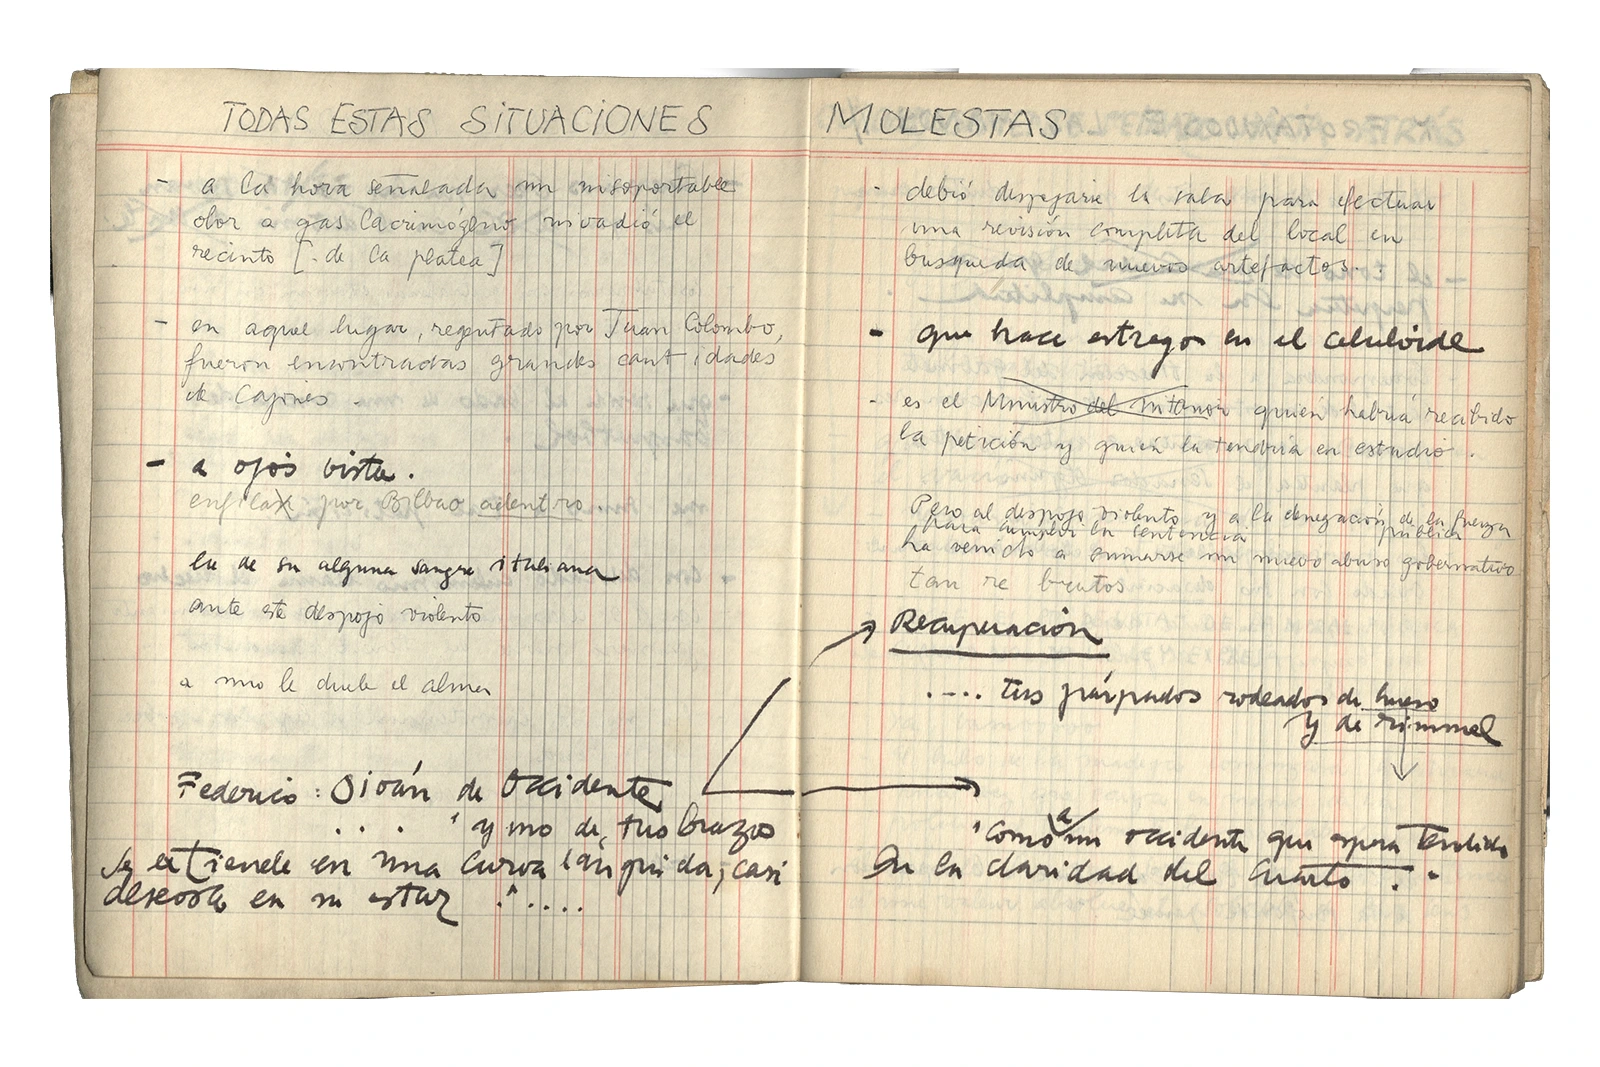 TODAS ESTAS SITUACIONES
- a la hora señalada un insoportable
olor a gas lacrimógeno invadió el
recinto [. de la platea]
- en aquel lugar, regentado por Juan Colombo,
fueron encontradas grandes cantidades
de Cajones.
- a ojos vista.
enfilax por Bilbao adentro
le de su alguna sangre italiana
ante este despojo violento
a uno le duele el alma
Federico: Diván de Occidente
. . . . " y uno de tus brazos
se extiende en una curva lánguida, casi
deseosa en su estar " . . . .
MOLESTAS
- debió despejarse la sala para efectuar
una revisión completa del local en
busqueda de nuevos artefactos. .
- que hace estragos en el celuloide
- es el Ministro del interior quién habría recibido
la petición y quién la tendría en estudio.
Pero al despojo violento y a la denegación de la fuerza
pública
para cumplir la sentencia
ha venido a sumarse un nuevo abuso gobernativo
tan re brutos
Recuperación
. . . . . tus párpados rodeados de hueso
y de rimmel
" como a un occidente que espera tendido
en la claridad del cuarto . "